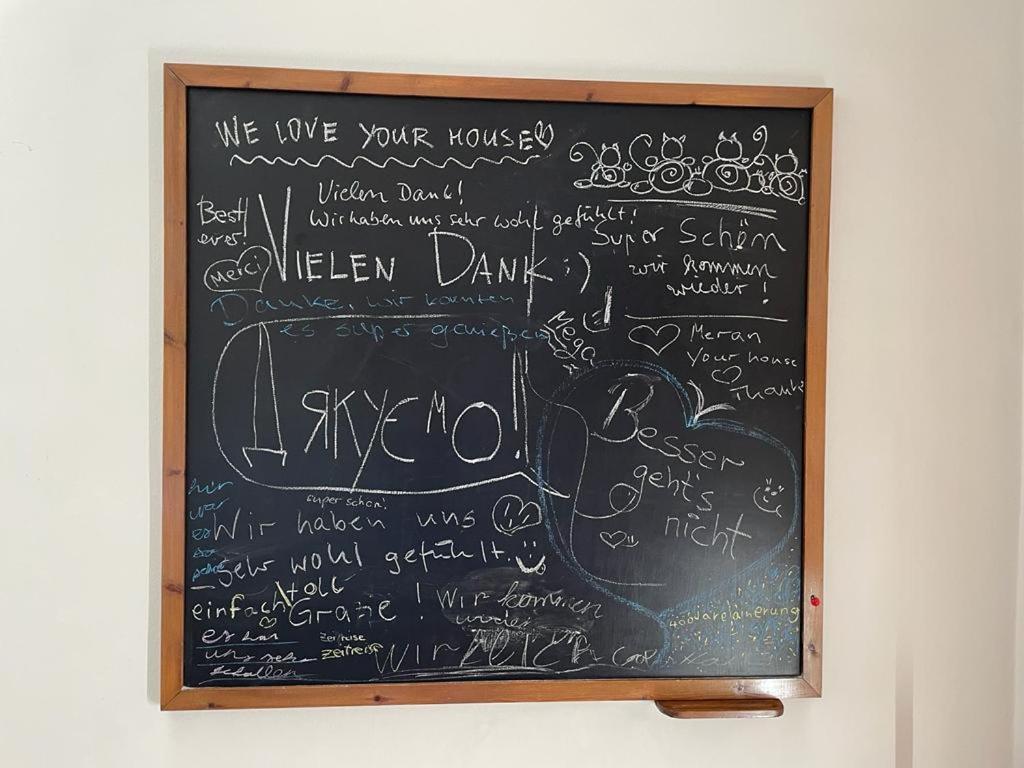 WE LOVE YOUR HOUSE
Best
ever!
Merci
Vielen Dank!
Wir haben uns sehr wohl gefühlt!
VIELEN DANK :)
Danke, wir konnten
es super genießen
Super Schön
wir kommen
wieder!
Mega
Meran
Your house
Thanks
ДЯКУЄМО!
Besser
geht's
nicht
hir
war
es
super schön!
Wir haben uns
sehr wohl gefühlt.
einfach toll
Grazie!
Wir kommen
wieder
es hat
uns
gefallen
Zeitreise
Zeitreise
Wir AUCH
COOL